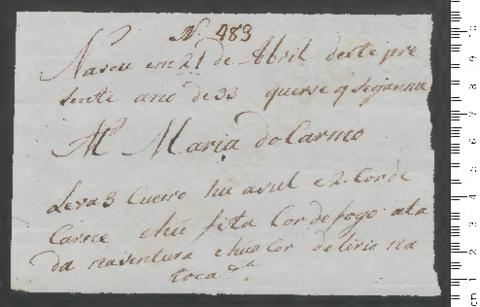 N. 483
Nasceu em 21 de Abril deste pre
sente ano de 33 querse q seja nna
M Maria do Carmo
Leva 3 Cueiro hú azul e 2. Cor de
Carne e hú fita Cor de fogo ata
da na sentura e hua Cor de lirio na
toca &a